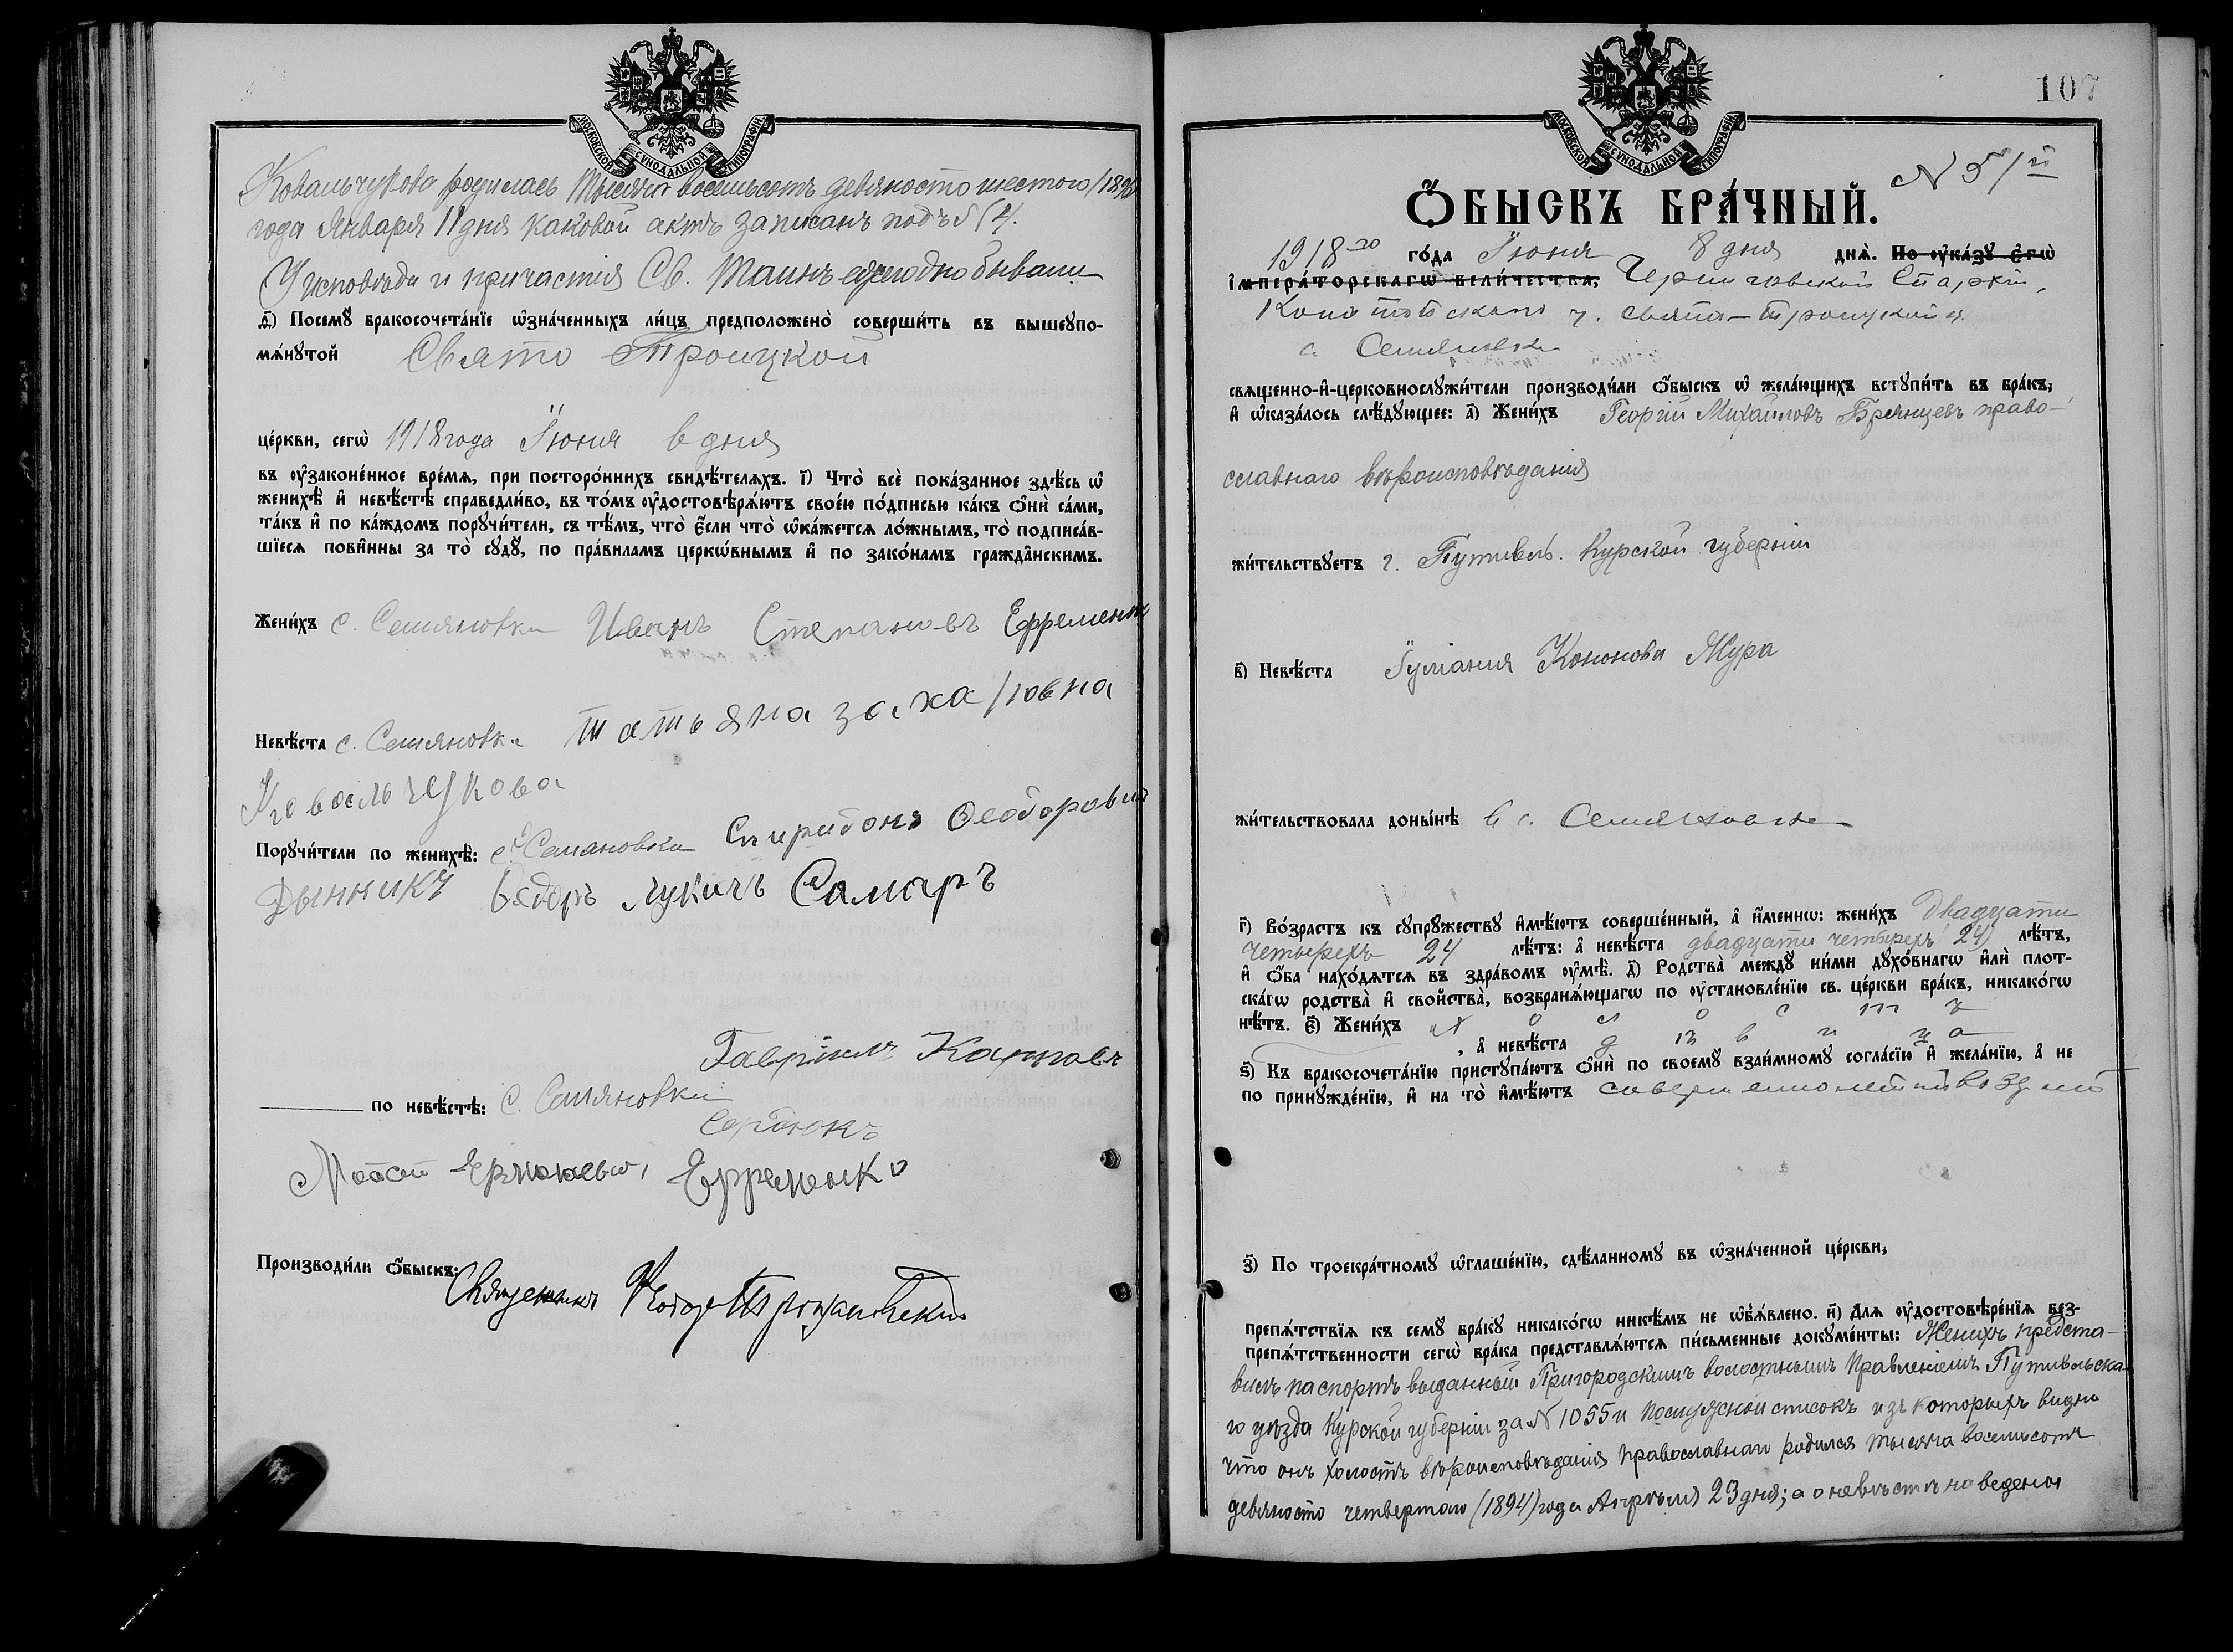 МОСКОВСКОЙ СУНОДАЛЬНОЙ ТИПОГРАФІИ
Ковальчукова родилась тысяча восемьсотъ девяносто шестого /1896
года Января 11 дня каковой актъ записанъ подъ № 4.
У исповѣди и причастія Св. Таинъ ежегодно бывали
д҃) Посемꙋ бракосочета́нїе ѡ҆зна́ченныхъ ли́цъ предположено̀ соверши́ть въ вышеꙋпо-
мѧ́нꙋтой Свято Троицкой
це́ркви, сегѡ̀ 1918 года Іюня 6 дня
въ ᲂу҆законе́нное вре́мѧ, при посторо́ннихъ свидѣ́телѧхъ. і҃) Что̀ всѐ пока́занное здѣ́сь ѡ҆
женихѣ̀ и҆ невѣ́стѣ справедли́во, въ то́мъ ᲂу҆достовѣрѧ́ютъ свое́ю по́дписью ка́къ ѻ҆нѝ са́ми,
та́къ и҆ по ка́ждомъ порꙋчи́тели, съ тѣ́мъ, что̀ є҆́сли что̀ ѡ҆ка́жетсѧ ло́жнымъ, то̀ подписа́в-
шїесѧ пови́нны за то̀ сꙋдꙋ̀, по пра́виламъ церко́внымъ и҆ по зако́намъ гражда́нскимъ.
Жени́хъ с. Семяновки Иванъ Степановъ Ефременк
Невѣ́ста с. Семяновки татьяна захаровна
Ковальчукова
Порꙋчи́тели по женихѣ̀: с. Семяновки Спиридонъ Феодоровичъ
Дынникъ Федоръ Лукичъ Самаръ
Гавріилъ Карповъ
по невѣ́стѣ: с. Семяновки
Сердюкъ
Ефременко
Производи́ли ѻ҆́быскъ: Священникъ
107
МОСКОВСКОЙ СУНОДАЛЬНОЙ ТИПОГРАФІИ
N 51й
Ѻ҆БЫСКЪ БРА́ЧНЫЙ.
1918го го́да Іюня 8 дня днѧ̀. По ᲂу҆ка́зꙋ є҆гѡ̀
і҆мпера́торскагѡ вели́чества, Черниговской Епархіи,
Конотопскаго у. свято-троицкой ц.
с. Семяновки
свѧще́нно-и҆-церковнослꙋжи́тели производи́ли ѻ҆́быскъ ѡ҆ жела́ющихъ встꙋпи́ть въ бра́къ,
и҆ ѡ҆каза́лось слѣ́дꙋющее: а҃) Жени́хъ Георгій Михайловъ Брянцевъ право-
славнаго вѣроисповѣданія
жи́тельствꙋетъ г. Путивль. Курской губерніи
в҃) Невѣ́ста Іуліанія Кононова Жура
жи́тельствовала доны́нѣ в с. Семяновке
г҃) Во́зрастъ къ сꙋпрꙋ́жествꙋ и҆мѣ́ютъ соверше́нный, а҆ и҆́меннѡ: жени́хъ двадцати
четырехъ 24 лѣ́тъ: а҆ невѣ́ста двадцати четырехъ 24 лѣ́тъ,
и҆ ѻ҆́ба нахо́дѧтсѧ въ здра́вомъ ᲂу҆мѣ̀. д҃) Родства̀ междꙋ̀ ни́ми дꙋхо́внагѡ и҆лѝ плот-
ска́гѡ родства̀ и҆ свойства̀, возбранѧ́ющагѡ по ᲂу҆становле́нїю св. це́ркви бра́къ, никако́гѡ
нѣ́тъ. є҃) Жени́хъ х о л о с т ъ
, а҆ невѣ́ста д ѣ в и ц а
ѕ҃) Къ бракосочета́нїю пристꙋпа́ютъ ѻ҆нѝ по своемꙋ̀ взаи́мномꙋ согла́сїю и҆ жела́нїю, а҆ не
по принꙋжде́нїю, и҆ на то̀ и҆мѣ́ютъ
з҃) По троекра́тномꙋ ѡ҆глаше́нїю, сдѣ́ланномꙋ въ ѡ҆зна́ченной це́ркви,
препѧ́тствїѧ къ семꙋ̀ бра́кꙋ никако́гѡ никѣ́мъ не ѡ҆б̾ѧ́влено. и҃) Длѧ ᲂу҆достовѣре́нїѧ без-
препѧ́тственности сегѡ̀ бра́ка представлѧ́ютсѧ пи́сьменные докꙋме́нты: Женихъ предста-
вилъ паспортъ выданный Пригородскимъ волостнымъ Правленіемъ Путивльска-
го уѣзда Курской губерніи за № 1055 и послужной списокъ изъ которыхъ видно
что онъ холостъ вѣроисповѣданія православнаго родился тысяча восемьсотъ
девяносто четвертаго (1894) года Апрѣля 23 дня; а о невѣстѣ наведена